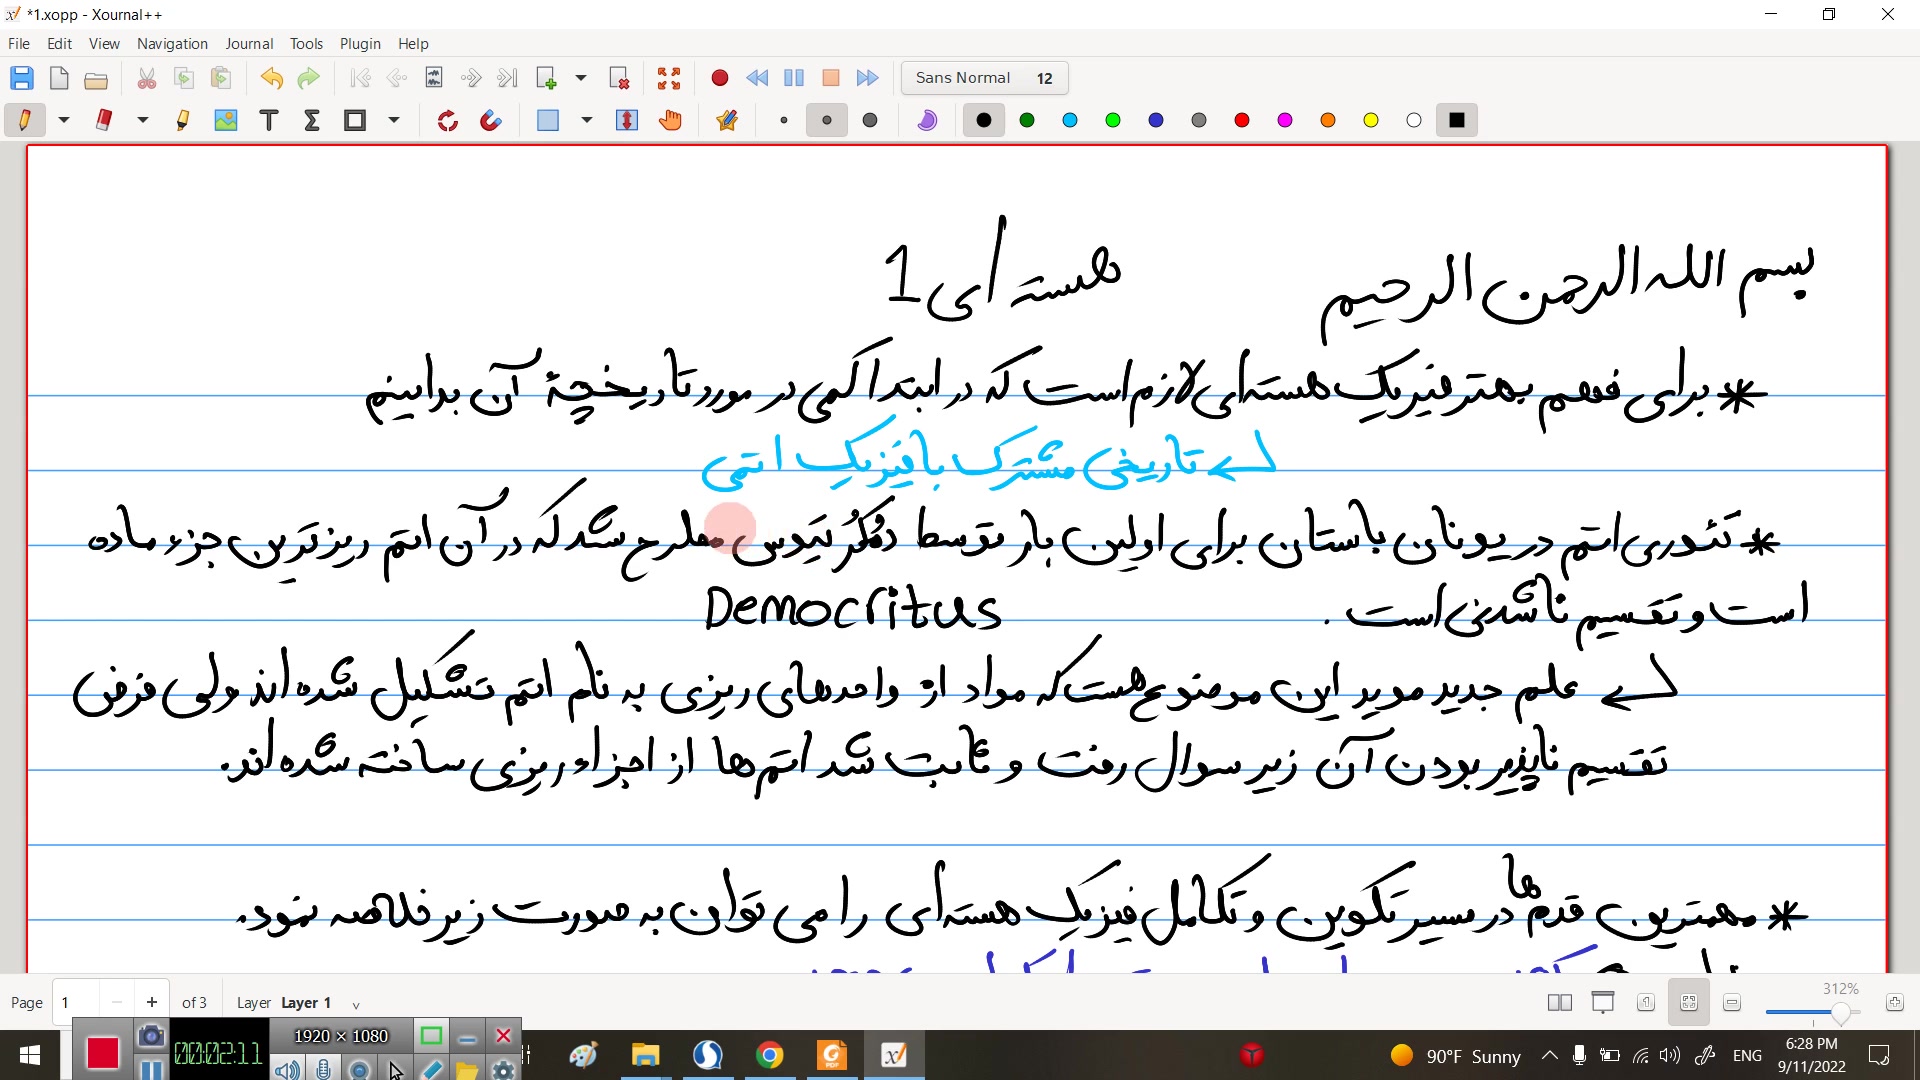 *1.xopp - Xournal++
File Edit View Navigation Journal Tools Plugin Help
Sans Normal 12
بسم الله الرحمن الرحیم
هسته ای 1
* برای فهم بهتر فیزیک هسته ای لازم است که در ابتدا کمی در مورد تاریخچهٔ آن بدانیم
تاریخی مشترک با فیزیک اتمی
* تئوری اتم در یونان باستان برای اولین بار توسط دموکریتوس مطرح شد که در آن اتم ریزترین جزء ماده
است و تقسیم ناشدنی است .
Democritus
علم جدید موید این موضوع هست که مواد از واحدهای ریزی به نام اتم تشکیل شده اند ولی فرض
تقسیم ناپذیر بودن آن زیر سوال رفت و ثابت شد اتم ها از اجزاء ریزی ساخته شده اند.
* مهمترین قدم ها در مسیر تکوین و تکامل فیزیک هسته ای را می توان به صورت زیر خلاصه نمود.
Page 1 of 3 Layer Layer 1
312%
00:02:11 1920 × 1080
90°F Sunny ENG 6:28 PM
9/11/2022